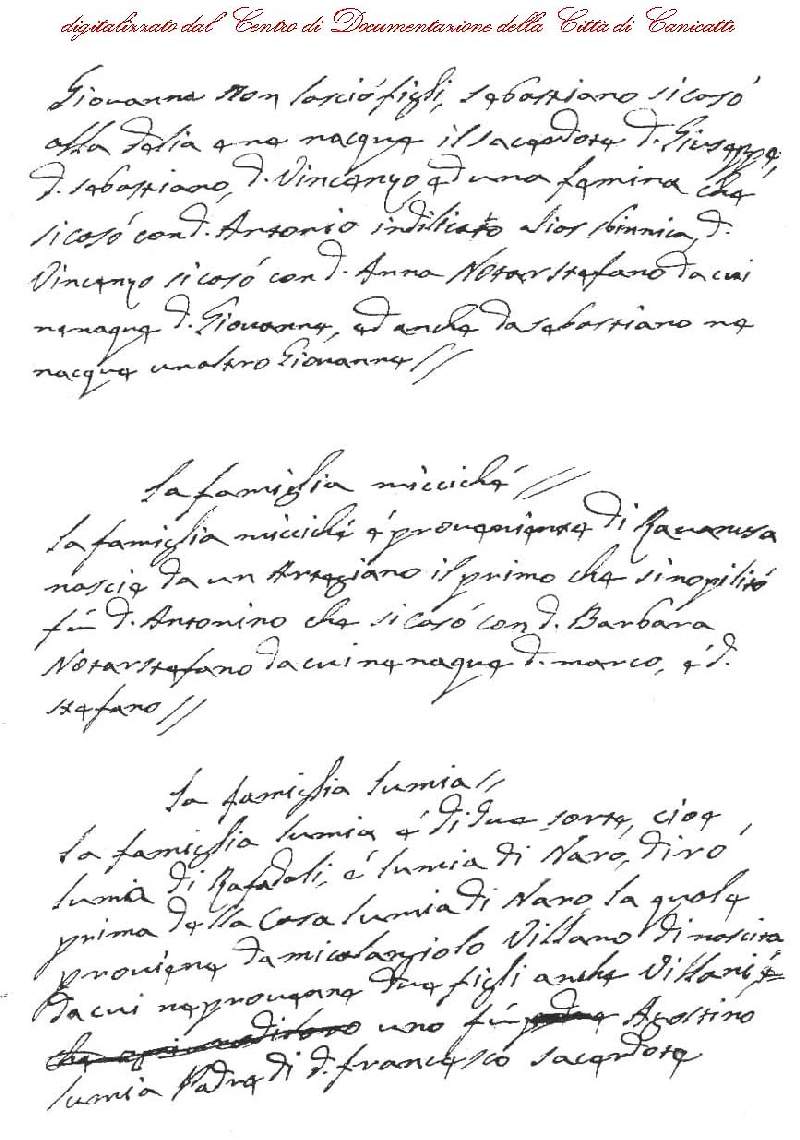 digitalizzato dal Centro di Documentazione della Città di Canicattì
Giovanne non lasciò figli, sebastiano si casò
alla delia e ne nacque il sacerdote d. Giuseppe,
d. sebastiano, d. Vincenzo ed una femina che
si casò con d. Antonio indilicato d.
Vincenzo si casò con d. Anna Notarstefano da cui
ne naque d. Giovanne, ed anche da sebastiano ne
nacque un altro Giovanne //
La famiglia micciché //
La famiglia micciché é proveniente di Ravanusa
nascie da un Artegiano il primo che si nopilitó
fú d. Antonino che si casó con d. Barbara
Notarstefano da cui ne naque d. marco, é d.
stefano //
La famiglia lumia //
La famiglia lumia é di due sorte, cioe
lumia di Rafadali, é lumia di Naro, diró
prima della Casa lumia di Naro la quale
proviene da micolangiolo Villano di nascita
da cui ne provenne due figli anche Villani é
uno fú Agostino
lumia Padre di d. francesco sacerdote